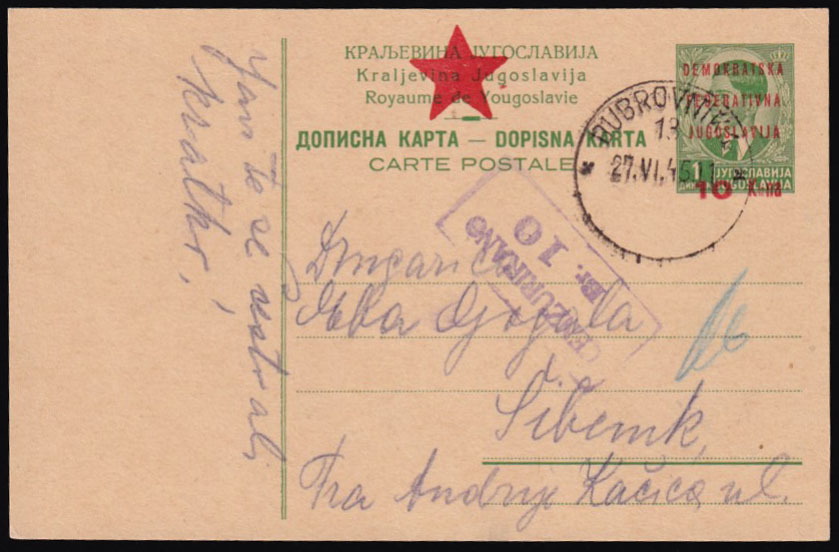 КРАЉЕВИНА ЈУГОСЛАВИЈА
Kraljevina Jugoslavija
Royaume de Yougoslavie
ДОПИСНА КАРТА — DOPISNA KARTA
CARTE POSTALE
DEMOKRATSKA
FEDERATIVNA
JUGOSLAVIJA
1
ДИН
ЈУГОСЛАВИЈА
JUGOSLAVIJA
10 Kuna
DUBROVNIK
27.VI.45 11
CENZURIRANO
Br. 10
Šibenik,
Fra Andrije Kačića ul.
se
kratko!